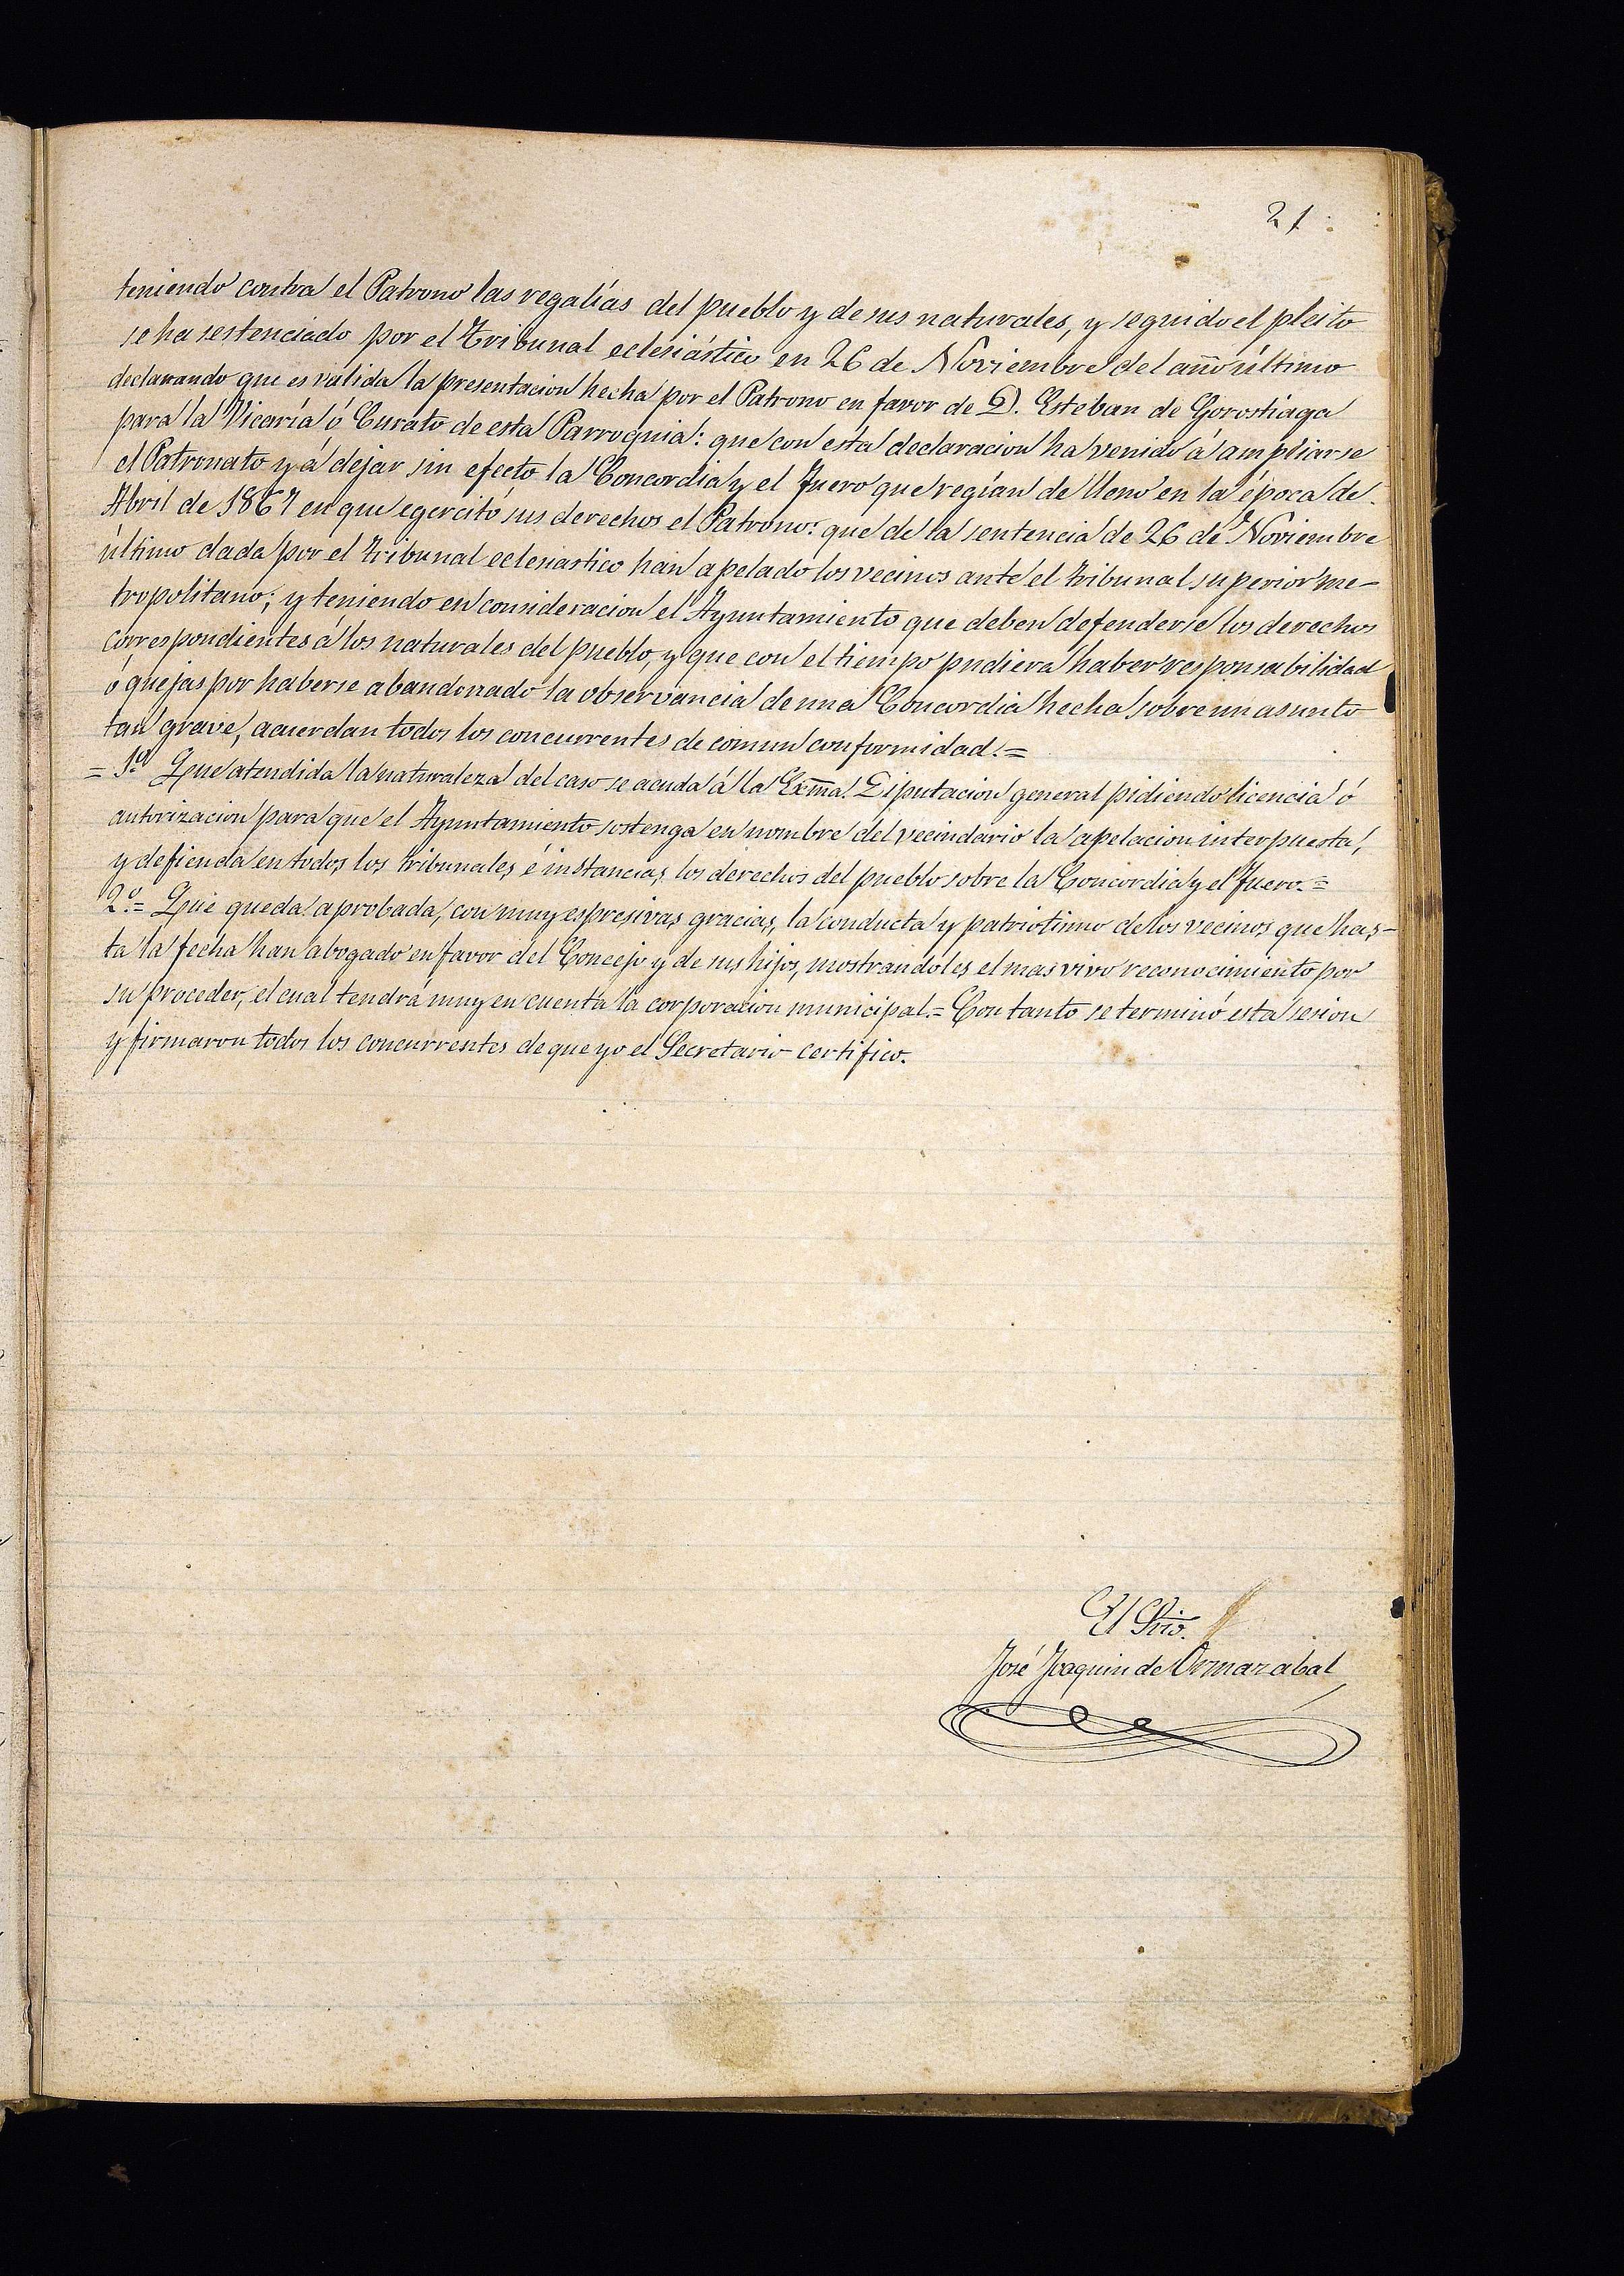 21
teniendo contra el Patrono las regalías del pueblo y de sus naturales, y seguido el pleito
se ha sestenciado por el Tribunal eclesiástico en 26 de Noviembre del año último
declarando que es válida la presentacion hecha por el Patrono en favor de D. Esteban de Gorostiaga
para la Vicaría ó Curato de esta Parroquia: que con esta declaracion ha venido á ampliarse
el Patronato y á dejar sin efecto la Concordia y el fuero que regían de lleno en la época de
Abril de 1867 en que egercitó sus derechos el Patrono: que de la sentencia de 26 de Noviembre
último dada por el tribunal eclesiastico han apelado los vecinos ante el tribunal superior me-
tropolitano; y teniendo en consideracion el Ayuntamiento que deben defenderse los derechos
correspondientes á los naturales del pueblo, y que con el tiempo pudiera haber responsabilidad
ó quejas por haberse abandonado la observancia de una Concordia hecha sobre un asunto
tan grave, acuerdan todos los concurrentes de comun conformidad.=
= 1º Que atendida la naturaleza del caso se acuda á la Exma. Diputacion general pidiendo licencia ó
autorizacion para que el Ayuntamiento sostenga en nombre del vecindario la apelacion interpuesta,
y defienda en todos los tribunales é instancias los derechos del pueblo sobre la Concordia y el fuero.=
2º.= Que queda aprobada, con muy espresivas gracias, la conducta y patriotimo de los vecinos que has-
ta la fecha han abogado en favor del Concejo y de sus hijos, mostrandoles el mas vivo reconocimiento por
su proceder, el cual tendrá muy en cuenta la corporacion municipal.= Con tanto se terminó esta sesion
y firmaron todos los concurrentes de que yo el Secretario certifico.
El Srio.
José Joaquin de Ormazabal